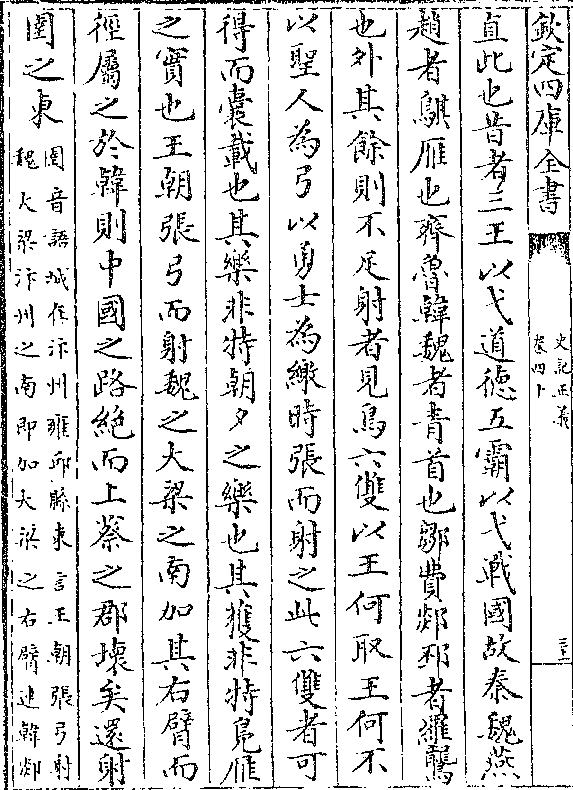 欽定四庫全書
史記正義
卷四十
三十二
直此也昔者三王以弋道德五霸以弋戰國故秦魏燕
趙者鶀雁也齊魯韓魏者青首也鄒費郯邳者羅鸗
也外其餘則不足射者見鳥六雙以王何取王何不
以聖人為弓以勇士為繳時張而射之此六雙者可
得而囊載也其樂非特朝夕之樂也其獲非特鳧雁
之實也王朝張弓而射魏之大梁之南加其右臂而
徑屬之於韓則中國之路絶而上蔡之郡壞矣還射
圉之東
圉音語城在汴州雍邱縣東言王朝張弓射
魏大梁汴州之南即加大梁之右臂連韓郯